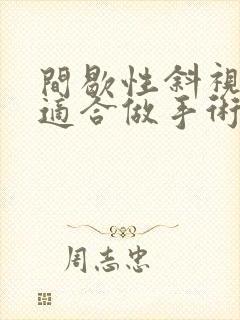 間歇性斜視
適合做手術
周志忠